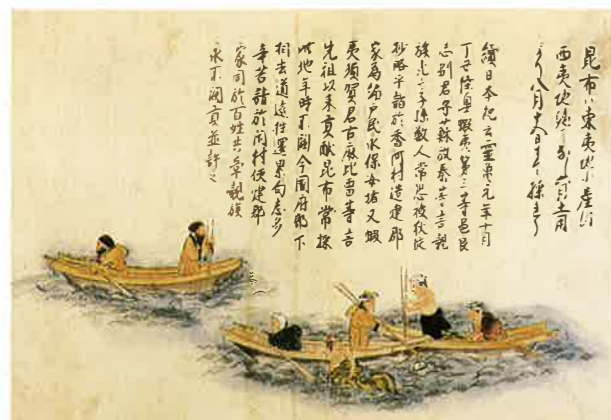 昆布ハ東夷地ノ産
西夷地
八月十
續日本紀云靈亀元年十月
丁丑陸奥蝦夷第三等邑良
志別君宇蘇弥奈等言親
族死亡子孫數人常恐被狄徒
抄略乎請於香河村造建郡
家為編戸民永保安堵又蝦
夷須賀君古麻比留等言
先祖以来貢献昆布常採
此地年時不闕今國府郭下
相去道遠往還累旬甚多
辛苦請於閇村便建郡
家同於百姓共率親族
永不闕貢並許之